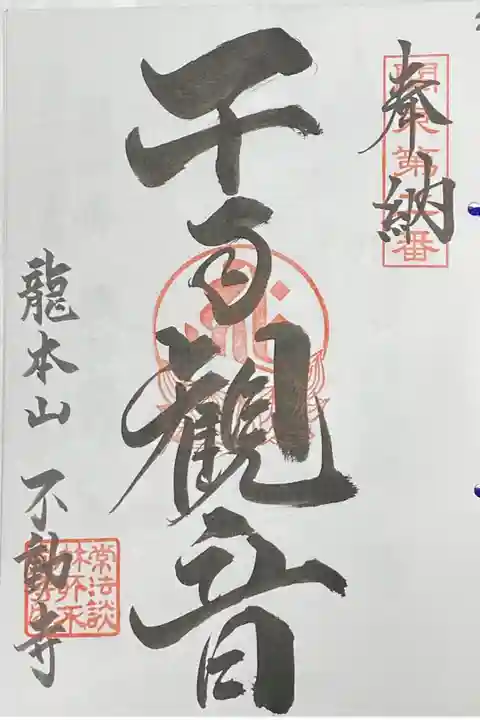 奉納
關東第 番
千手観音
龍本山 不動寺
常法談
林